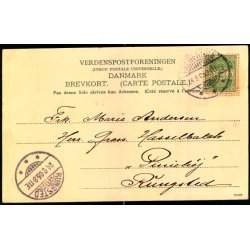 VERDENSPOSTFORENINGEN
(UNION POSTALE UNIVERSELLE.)
DANMARK
BREVKORT. (CARTE POSTALE.)
Paa denne Side skrives kun Adressen. (Côté réservé à l'adresse.)
Frk. Marie Andersen
Hers. Gross. Hasselbalch
Rungsted
RUNGSTED